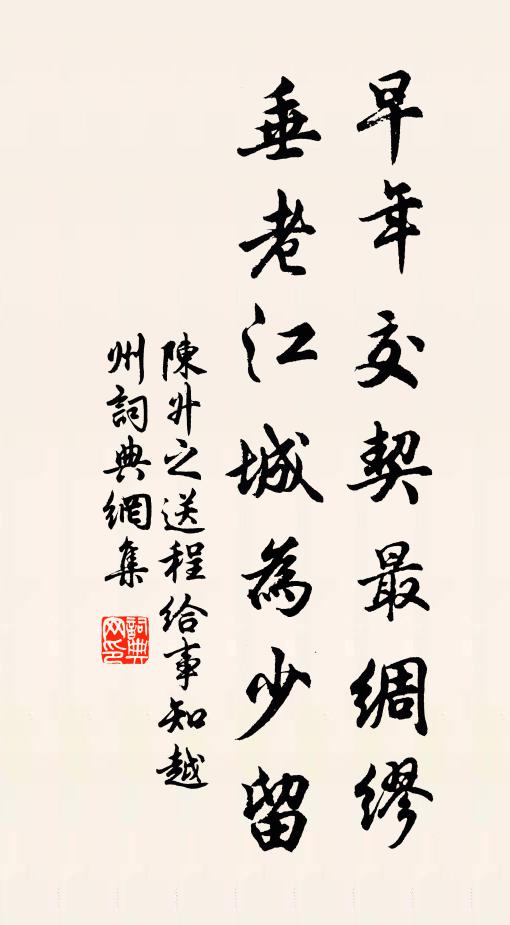 早年交契最綢繆
垂老江城為少留
陳升之送程給事知越
州詞典網集
詞典網印